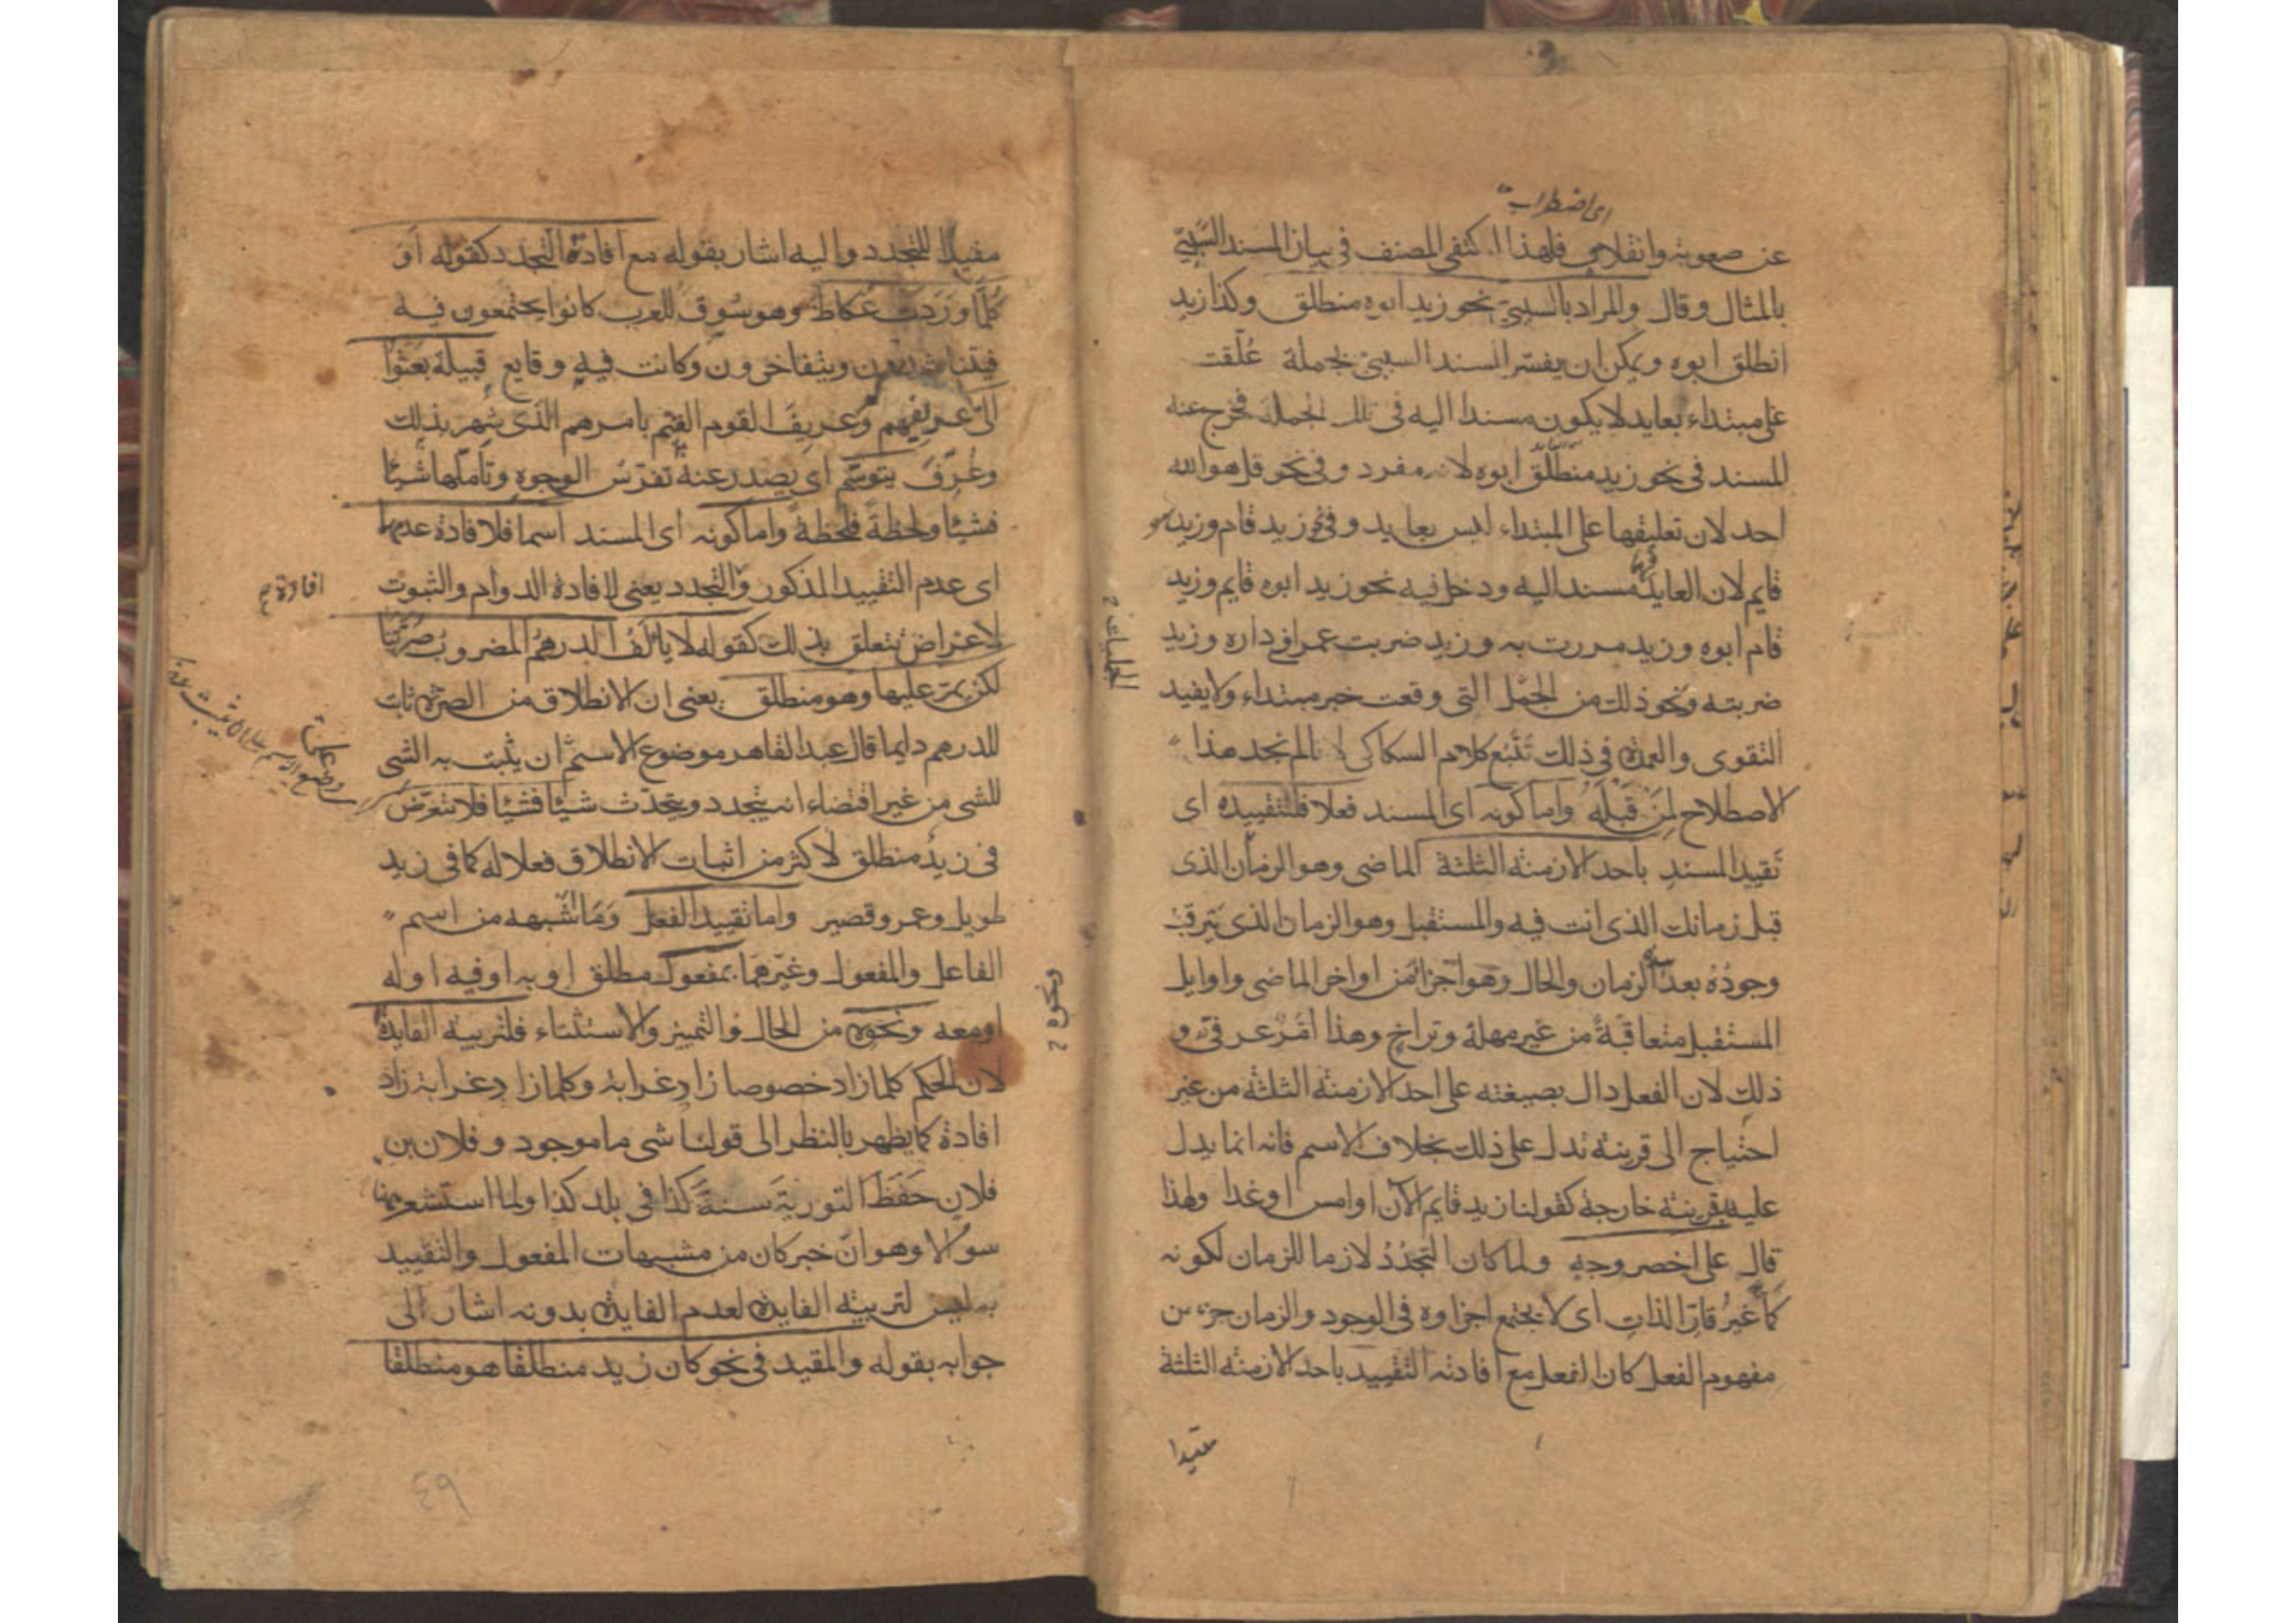 اى اضطراب
عن صعوبة وانغلاق فلهذا اكتفى المصنف فى بيان المسند السببى
بالمثال وقال والمراد بالسببى نحو زيد ابوه منطلق وكذا زيد
انطلق ابوه ويمكن ان يفسر المسند السببى بجملة عُلّقت
على مبتداء بعايد لا يكون مسندا اليه فى تلك الجملة فخرج عنه
المسند فى نحو زيد منطلق ابوه لانه مفرد وفى نحو قل هو الله
احد لان تعليقها على المبتداء ليس بعايد وفى نحو زيد قام وزيد هو
قايم لان العايد فيهما مسند اليه ودخل فيه نحو زيد ابوه قايم وزيد
قام ابوه وزيد مررت به وزيد ضربت عمرا فى داره وزيد
ضربته ونحو ذلك من الجمل التى وقعت خبر مبتداء ولا يفيد
التقوى والعمدة فى ذلك تَتَبُّع كلام السكاكى لانا لم نجد هذا
الاصطلاح لِمَنْ قَبْلَه واما كونه اى المسند فعلا فللتقييده اى
تقييد المسند باحد الازمنة الثلثة الماضى وهو الزمان الذى
قبل زمانك الذى انت فيه والمستقبل وهو الزمان الذى يترقب
وجودُهُ بعد هذا الزمان والحال وهو اجزاء من اواخر الماضى واوايل
المستقبل متعاقبةً من غير مهلة وتراخٍ وهذا امْرٌ عرفىّ و
ذلك لان الفعل دال بصيغته على احد الازمنة الثلثة من غير
احتياج الى قرينة تدل على ذلك بخلاف الاسم فانه انما يدل
عليه بقرينة خارجة كقولنا زيد قايم الآن او امس او غدا ولهذا
قال على اخصر وجه ولما كان التجدُدُ لازما للزمان لكونه
كمّا غيرُ قارّ الذات اى لا يجتمع اجزاوه فى الوجود والزمان جزء من
مفهوم الفعل كان الفعل مع افادته التقييد باحد الازمنة الثلثة
مفيدا
مفيدا للتجدد واليه اشار بقوله مع افادة التجدد كقوله اَوَ
كُلّما وَرَدَتْ عُكاظ وهو سُوق للعرب كانوا يجتمعون فيه
فيتناشدون ويتفاخرون وكانت فيه وقايع قبيلة بَعَثُوا
الىّ عريفهم وعريفَ القوم القيّم بامرهم الذى شهر بذلك
وعُرِّفَ يتوسّم اى يصدر عنه تفرّسُ الوجوه وتأملها شيئا
فشيئا ولحظةً فلحظةً واما كونه اى المسند اسما فلافادة عدمهما
اى عدم التقييد المذكور والتجدد يعنى لافادة الدوام والثبوت
لاغراض تتعلق بذلك كقوله لا يألَفُ الدرهمُ المضروبُ صُرّتنا
لكن يمرّ عليها وهو منطلق يعنى ان الانطلاق من الصرة ثابت
للدرهم دايما قال عبد القاهر موضوع الاسم ان يثبت به الشى
للشى من غير اقتضاء انه يتجدد ويحدث شيئا فشيئا فلا تتعرّض
فى زيدٌ منطلق لاكثر من اثبات الانطلاق فعلا له كما فى زيد
طويل وعمرو قصير واما تقييد الفعل وَمَا اشبهه من اسم
الفاعل والمفعول وغيرهما بمفعول مطلق او به او فيه او له
او معه ونحوه من الحال والتمييز والاستثناء فلتربية الفايدة
لان الحكم كلما زاد خصوصا زاد غرابة وكلما زاد غرابة زاد
افادة كما يظهر بالنظر الى قولنا شى ما موجود وفلان بن
فلان حَفَظَ التوريةَ سنةَ كذا فى بلد كذا ولما استشعر هنا
سوالا وهو انّ خبر كان من مشبهات المفعول والتقييد
به ليس لتربية الفايدة لعدم الفايدة بدونه اشار الى
جوابه بقوله والمقيد فى نحو كان زيد منطلقا هو منطلقا
افادة
ونحوه
٤٩